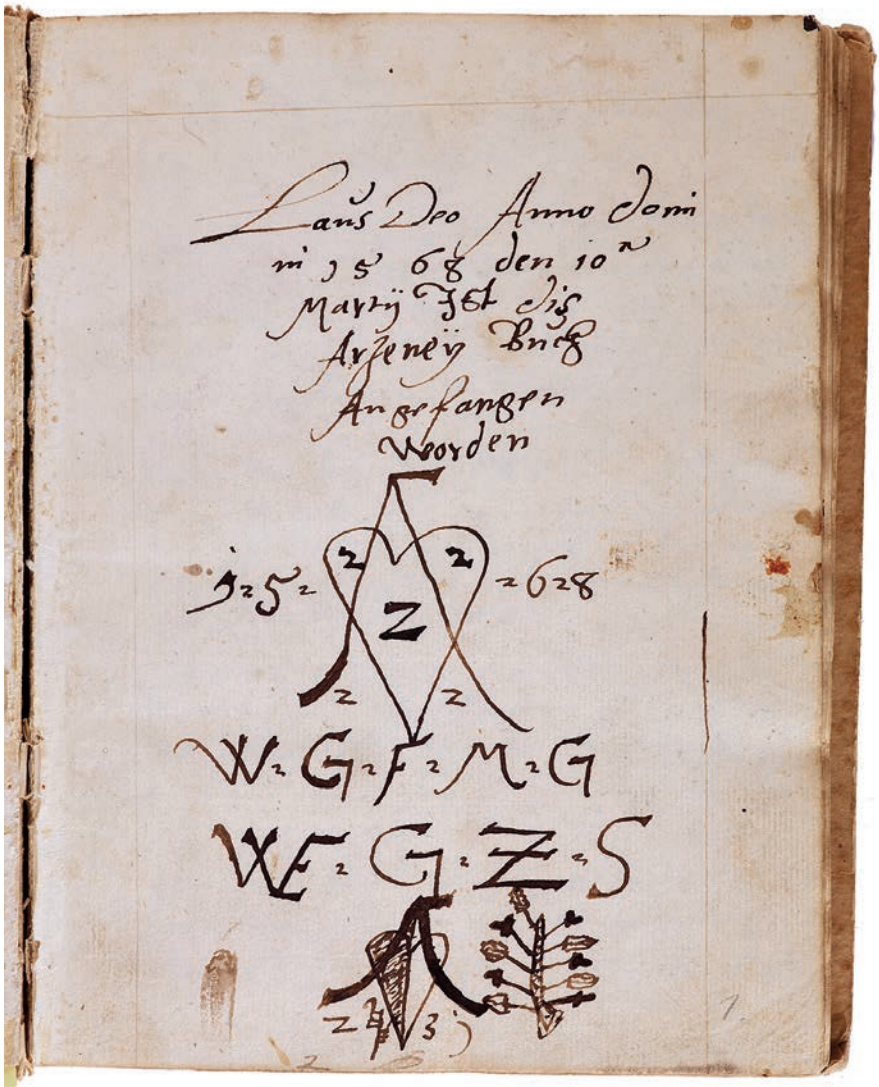 Laus Deo Anno Domi
ni 1568 den 10
Martÿ Ist dis
Arzeneÿ Buch
Angefangen
Worden
2 2
1 2 5 2 2 6 2 8
Z
2 2
W 2 G 2 F 2 M 2 G
WE 2 G 2 Z 2 S